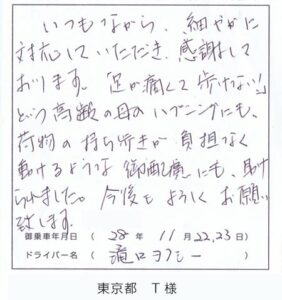 いつもながら、細やかに
対応していただき、感謝して
おります。「足が痛くて歩けない!」
という高齢の母のハプニングにも、
荷物の持ち歩きが負担なく
動けるようなご配慮にも、助け
られました。今後もよろしくお願い
致します。
御乗車年月日 ( 28年 11月 22,23日)
ドライバー名 ( 滝口 )
東京都 T様